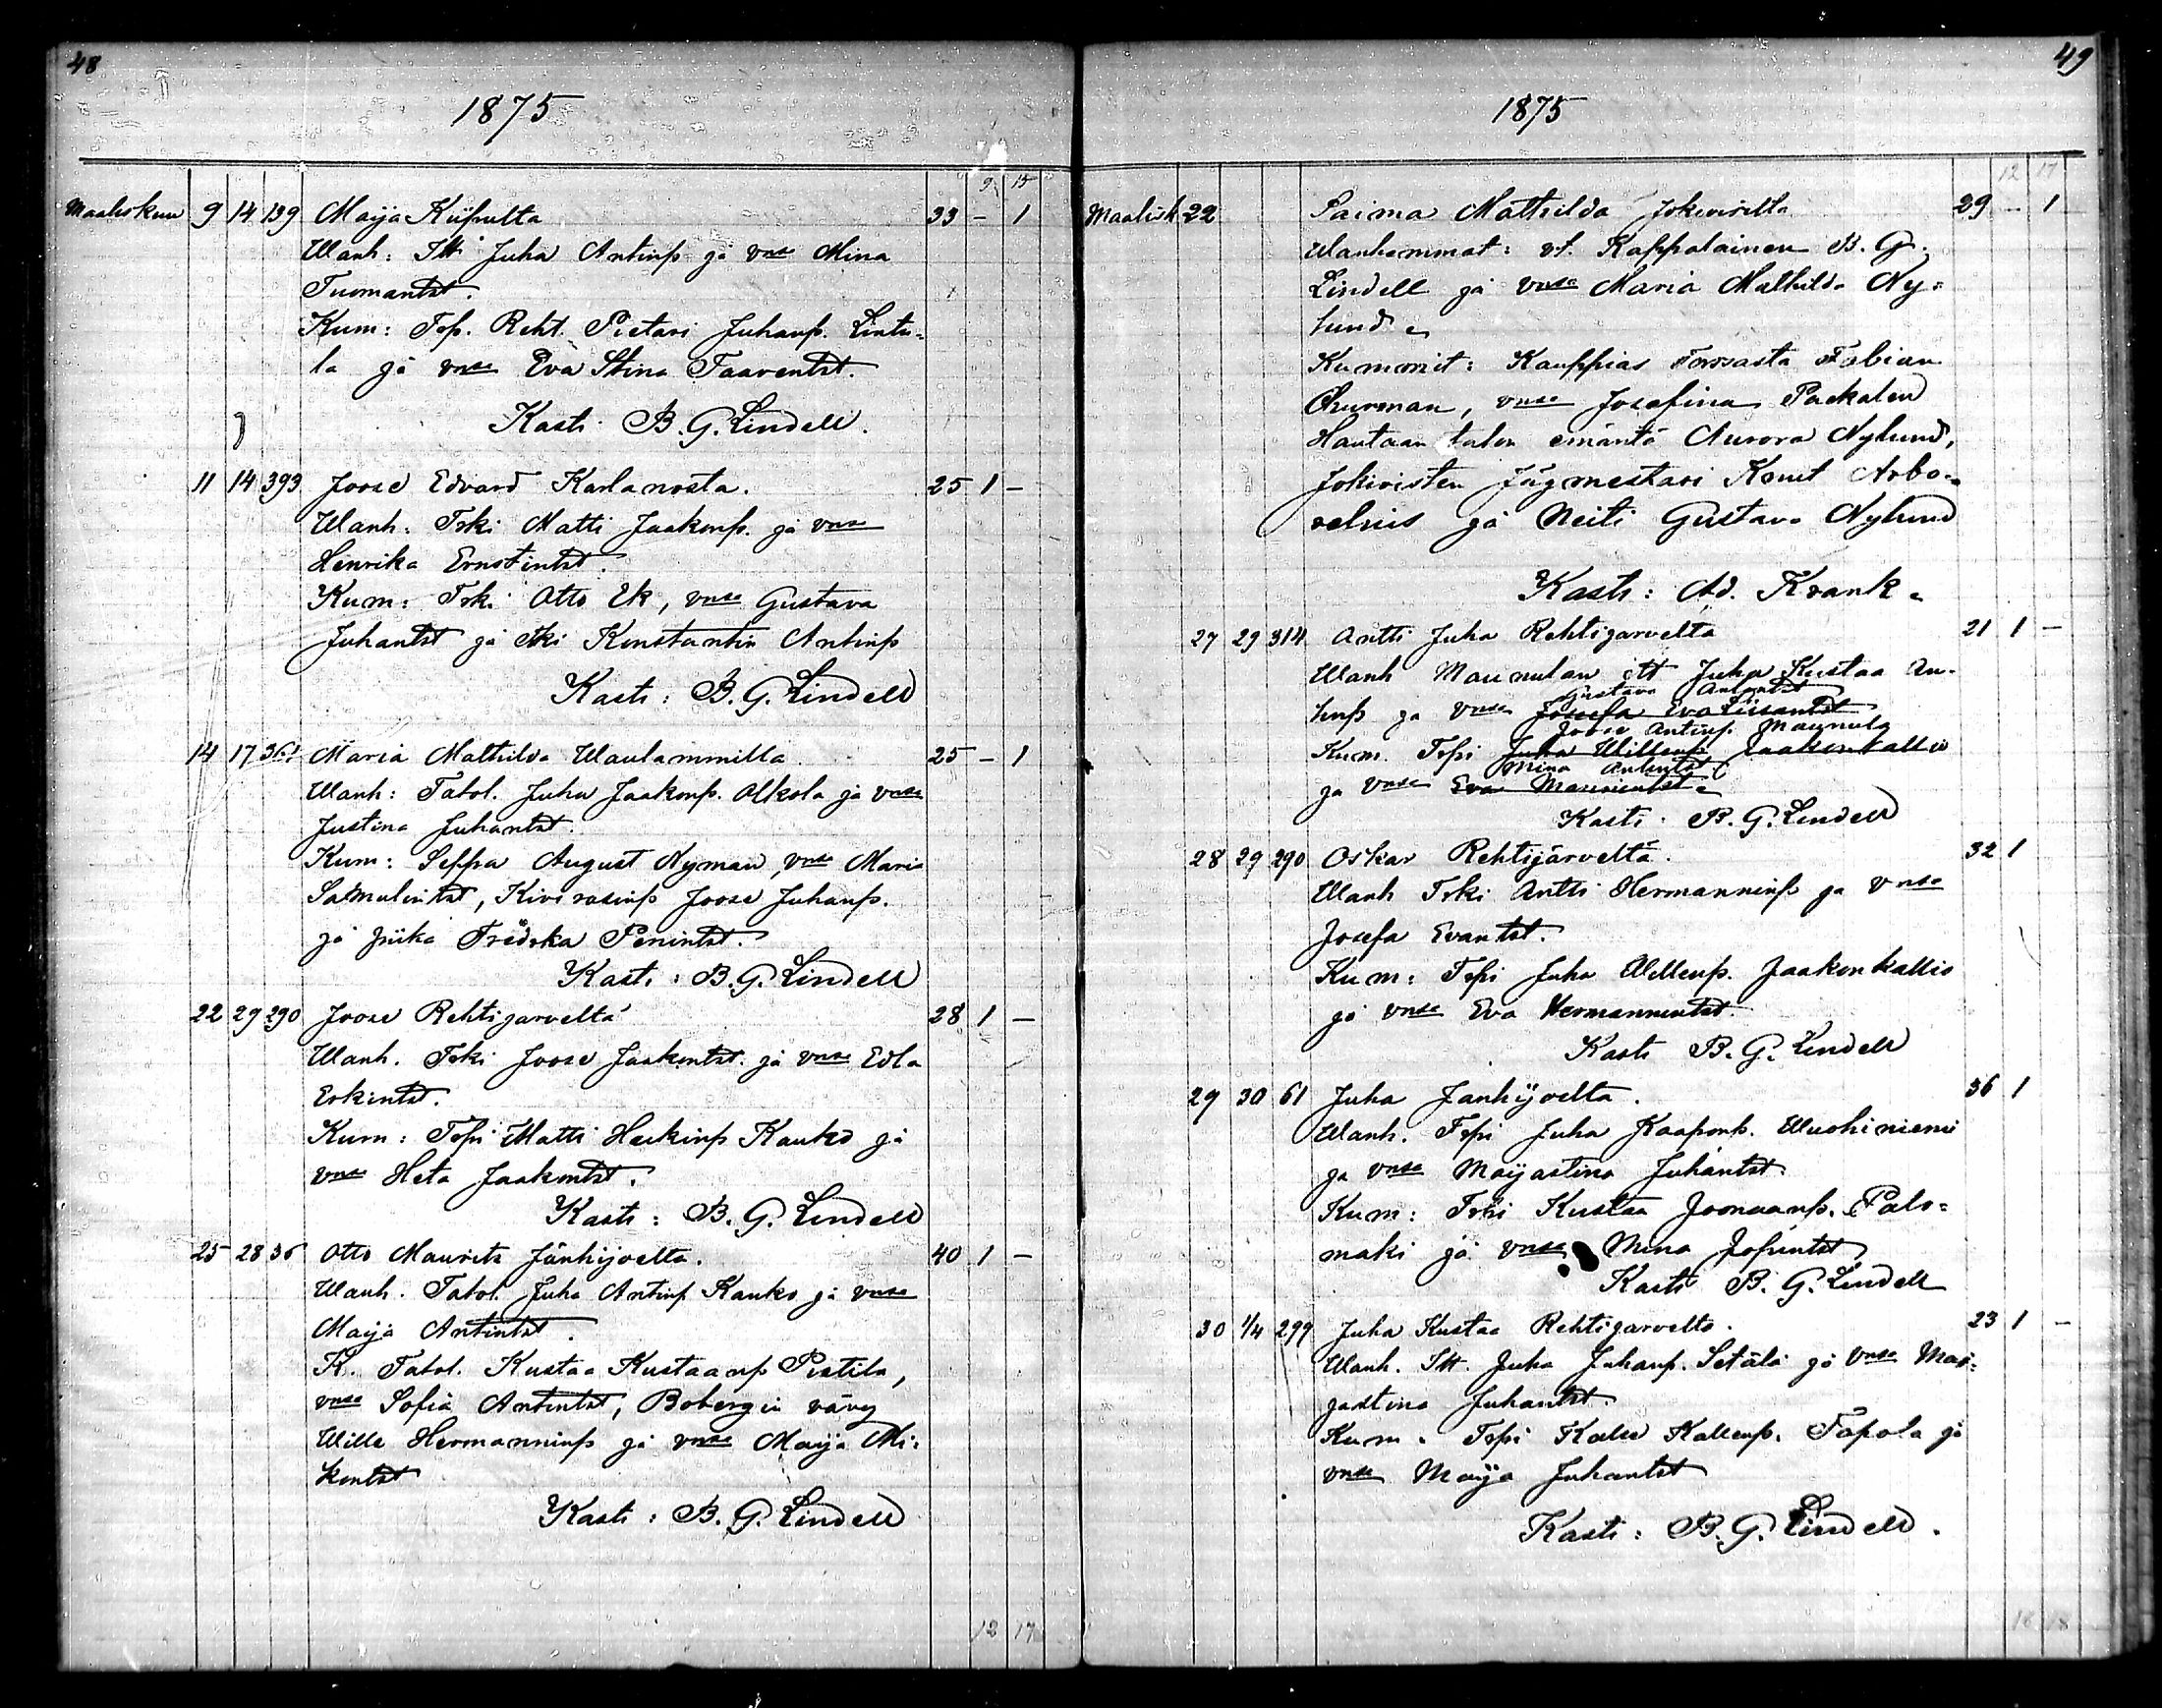 48
1875
9 15
Maaliskuu 9 14 139 Maija Kiipulta 33 - 1
Wanh: Itt Juha Antinp. ja vmsa Mina
Tuomantrt.
Kum: Trp. Reht. Pietari Juhanp. Lintu-
la ja vmsa Eva Stina Taaventrt.
Kasti B. G. Lindell.
11 14 393 Joose Edvard Karlanosta. 25 1 -
Wanh: Trki Matti Jaakonp. ja vmsa
Henrika Ernstintrt.
Kum: Trki Otto Ek, vmsa Gustava
Juhantrt ja Itki Konstantin Antinp
Kasti: B. G. Lindell
14 17 361 Maria Mathilda Waulammilla. 25 - 1
Wanh: Tatol. Juha Jaakonp. Alkola ja vmsa
Justina Juhantrt.
Kum: Seppa August Nyman, vmsa Maria
Samulintrt, Kivirasinp Joose Juhanp.
ja piika Fredrka Penintrt.
Kasti: B. G. Lindell
22 29 290 Joose Rehtijarveltä 28 1 -
Wanh. Trki Joose Jaakontrt. ja vmsa Edla
Erkintrt.
Kum: Trpi Matti Heikinp Kauko ja
vmsa Heta Jaakontrt.
Kasti: B. G. Lindell
25 28 36 Otto Mauritz Jänhijoelta. 40 1 -
Wanh. Tatol. Juha Antinp Kauko ja vmsa
Maija Antintrt.
K. Tatol. Kustaa Kustaanp Pietila,
vmsa Sofia Antintrt, Bobergin vävy
Wille Hermanninp ja vmsa Maija Mi-
kontrt
Kasti: B. G. Lindell
12 17
49
1875
12 17
Maalisk 22 Saima Mathilda Jokivirilta 29 - 1
Wanhemmat: vt. Kappalainen B. G.
Lindell ja vmsa Maria Mathilda Ny-
lund.
Kummit: Kauppias Forssasta Fabian
Öhurman, vmsa Josefina Packalen
Hautaan talon emäntä Aurora Nylund,
Jokivisten Jägmestari Knut Arbo-
relius ja Neiti Gustava Nylund
Kasti: Ad. Krank.
27 29 314 Antti Juha Rehtijarvelta 21 1 -
Wanh Maunulan itt Juha Kustaa An-
Gustava Antontrt
tinp ja vmsa Josefa Eva Liisantrt
Joose Antinp. Maunula
Kum. Trpi Juha Willenp. Jaakonkallio
Mina Antintrt
ja vmsa Eva Mauvientrt.
Kasti B. G. Lindell
28 29 290 Oskar Rehtijärveltä. 32 1
Wanh Trki Antti Hermanninp ja vmsa
Josefa Evantrt.
Kum: Trpi Juha Willenp. Jaakonkallio
ja vmsa Eva Hermannintrt.
Kasti B. G. Lindell
29 30 61 Juha Janhijoelta. 36 1
Wanh. Trpi Juha Kaaponp. Wuohiniemi
ja vmsa Maijastina Juhantrt.
Kum: Trki Kustaa Joonaanp. Palo-
maki ja vmsa Mina Jopintrt
Kasti B. G. Lindell
30 1/4 299 Juha Kustaa Rehtijarvelto. 23 1 -
Wanh. Itt. Juha Juhanp. Setälä ja vmsa Mai-
jastina Juhantrt.
Kum. Trpi Kalle Kallenp. Tapola ja
vmsa Maija Juhantrt
Kasti: B. G. Lindell.
16 18